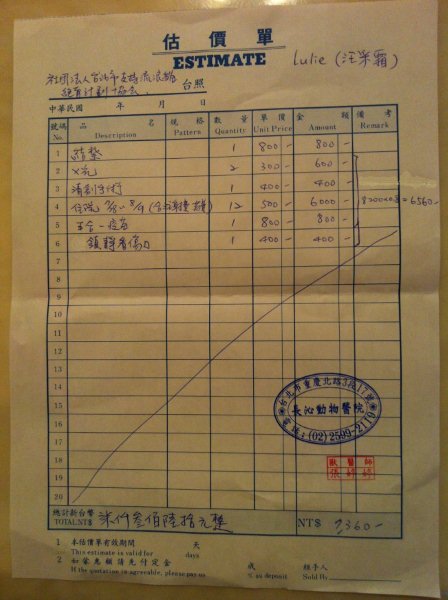 估價單
ESTIMATE
Lulie (汪采霜)
社團法人台北市支持流浪貓
絕育計劃協會 台照
中華民國 年 月 日
號碼 品名 規格 數量 單價 金額 備考
No. Description Pattern Quantity Unit Price Amount Remark
1 結紮 1 800- 800-
2 X光 2 300- 600-
3 清創手術 1 400- 400-
4 住院 12 500- 6000- 8200×0.8=6560-
5 五合一疫苗 1 800- 800-
6 1 400- 400-
7
8
9
10
11
12
13
14
15
16
17
18
19
20
台北市重慶北路3段17號
長沁動物醫院
電話:(02)2599-2119
獸醫師
總計新台幣
TOTAL NT$ 柒仟叁佰陸拾元整 NT$ 7360-
1 本估價單有效期間 天
This estimate is valid for days
2 如蒙惠顧請先付定金 成 經手人
If the quotation is agreeable, please pay us % as deposit Sold By